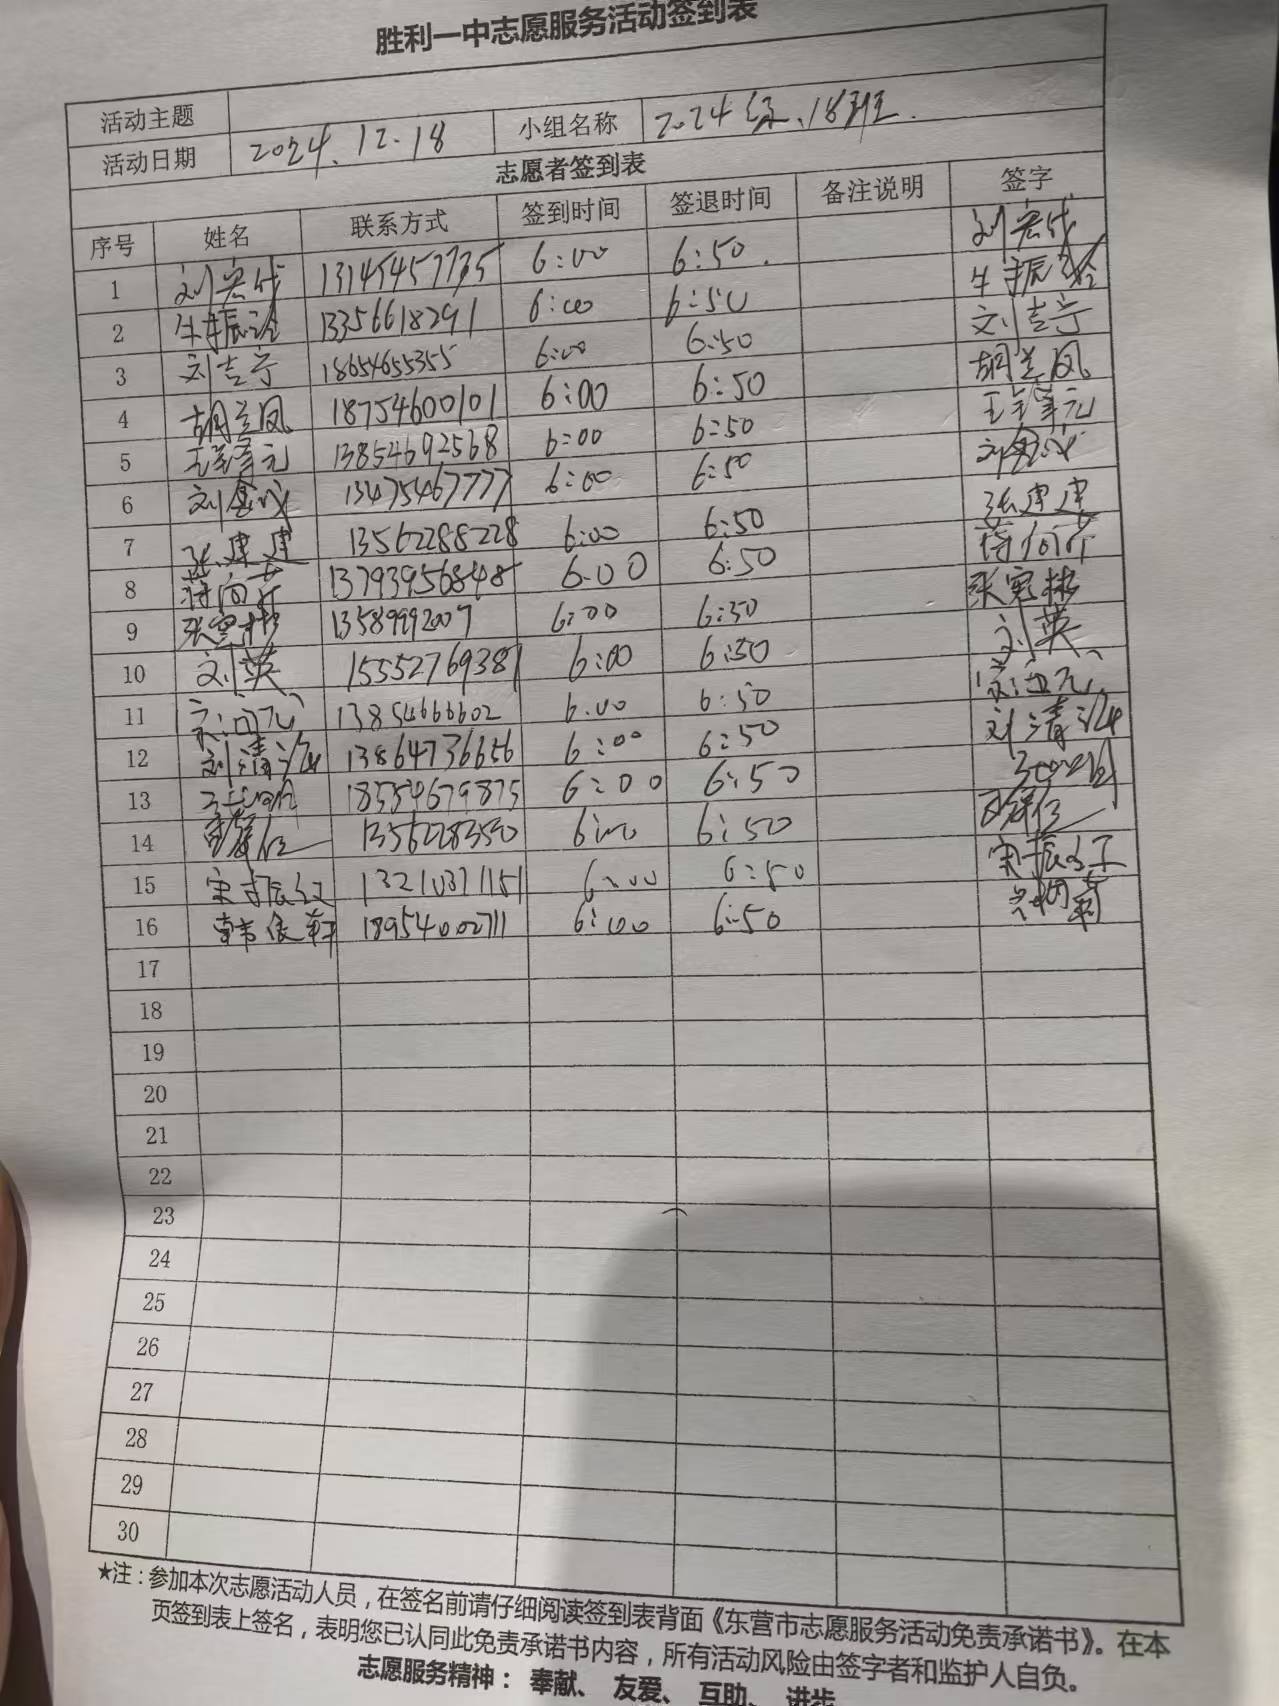 胜利一中志愿服务活动签到表
活动主题
活动日期 2024.12.18 小组名称 2024级.18班.
志愿者签到表
序号 姓名 联系方式 签到时间 签退时间 备注说明 签字
1 13145457735 6:00 6:50.
2 13356618291 6:00 6:50
3 刘吉宁 18654655355 6:00 6:50 刘吉宁
4 胡兰凤 18754600101 6:00 6:50 胡兰凤
5 13854692568 6:00 6:50
6 刘金成 13475467777 6:00 6:50 刘金成
7 张建建 13562288228 6:00 6:50 张建建
8 13793956848 6:00 6:50
9 13589992007 6:00 6:50
10 刘英 15552769381 6:00 6:50 刘英
11 13854666602 6:00 6:50
12 刘清 13864736656 6:00 6:50 刘清
13 18554679875 6:00 6:50
14 13562283550 6:00 6:50
15 宋振红 13210371151 6:00 6:50 宋振红
16 18954000711 6:00 6:50
17
18
19
20
21
22
23
24
25
26
27
28
29
30
★注:参加本次志愿活动人员,在签名前请仔细阅读签到表背面《东营市志愿服务活动免责承诺书》。在本
页签到表上签名,表明您已认同此免责承诺书内容,所有活动风险由签字者和监护人自负。
志愿服务精神:奉献、友爱、互助、进步